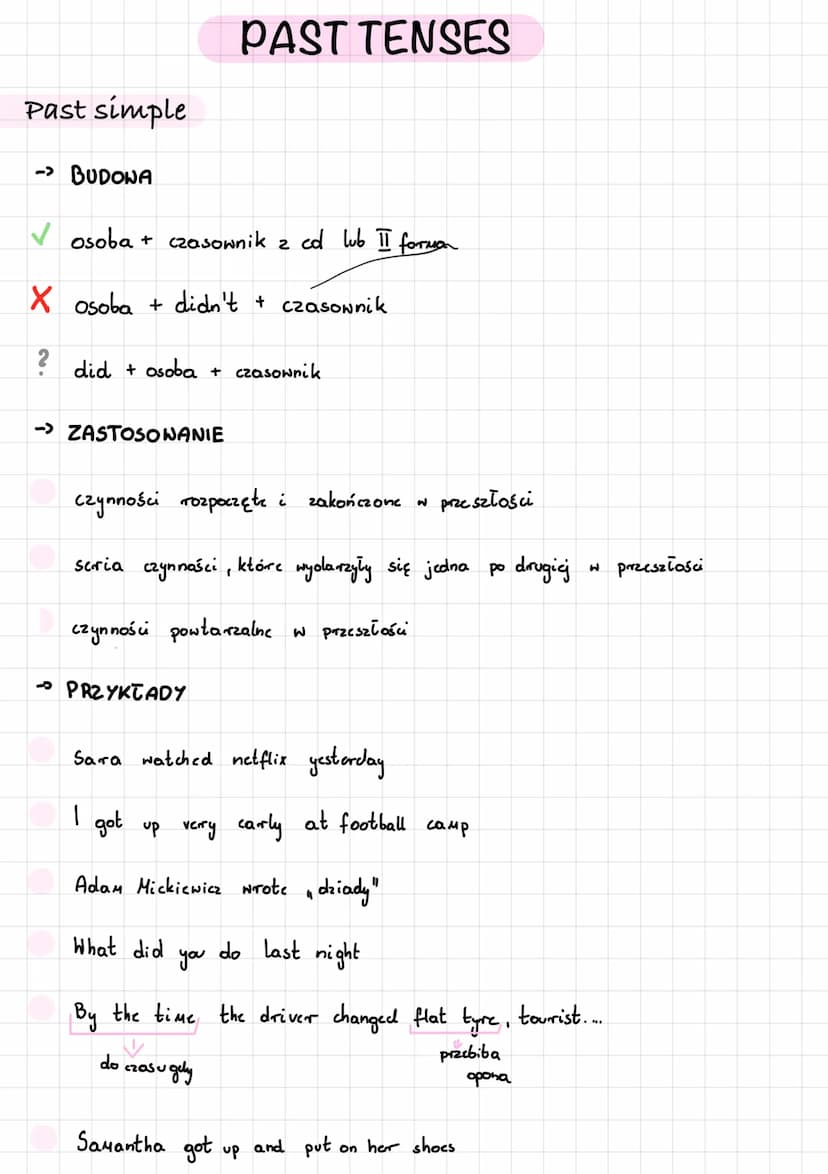 PAST TENSES
Past simple
-> BUDOWA
✓ osoba + czasownik z ed lub II forma
X osoba + didn't + czasownik
? did + osoba + czasownik
-> ZASTOSOWANIE
czynności rozpoczęte i zakończone w przeszłości
seria czynności, które wydarzyły się jedna po drugiej w przeszłości
czynności powtarzalne w przeszłości
-> PRZYKŁADY
Sara watched netflix yesterday
I got up very early at football camp
Adam Mickiewicz wrote „dziady"
What did you do last night
By the time, the driver changed flat tyre, tourist...
do czasu gdy
przebiba
opona
Samantha got up and put on her shoes